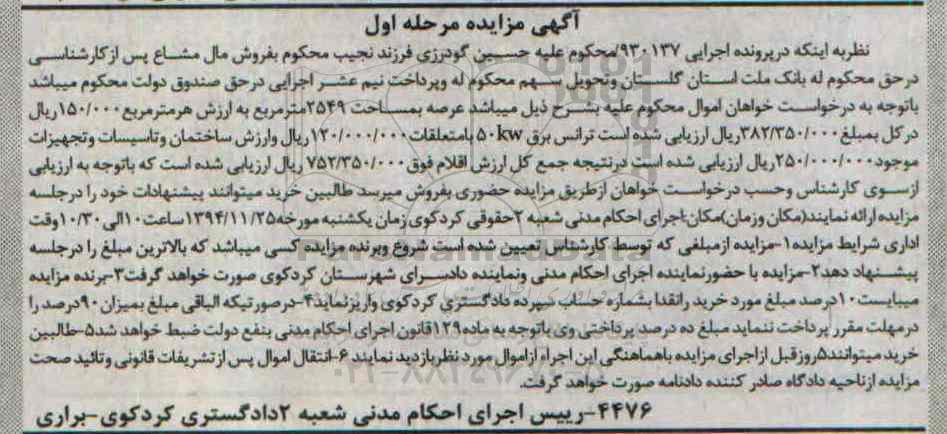 آگهی مزایده مرحله اول
نظربه اینکه درپرونده اجرایی ۹۳۰۱۳۷/محکوم علیه حسین گودرزی فرزند نجیب محکوم بفروش مال مشاع پس ازکارشناسی
درحق محکوم له بانک ملت استان گلستان وتحویل سهم محکوم له وپرداخت نیم عشر اجرایی درحق صندوق دولت محکوم میباشد
باتوجه به درخواست خواهان اموال محکوم علیه بشرح ذیل میباشد عرصه بمساحت ۲۵۴۹مترمربع به ارزش هرمترمربع۱۵۰/۰۰۰ریال
درکل بمبلغ۳۸۲/۳۵۰/۰۰۰ریال ارزیابی شده است ترانس برق ۵۰kw بامتعلقات۱۲۰/۰۰۰/۰۰۰ریال وارزش ساختمان وتاسیسات وتجهیزات
موجود۲۵۰/۰۰۰/۰۰۰ریال ارزیابی شده است درنتیجه جمع کل ارزش اقلام فوق۷۵۲/۳۵۰/۰۰۰ریال ارزیابی شده است که باتوجه به ارزیابی
ازسوی کارشناس وحسب درخواست خواهان ازطریق مزایده حضوری بفروش میرسد طالبین خرید میتوانند پیشنهادات خود را درجلسه
مزایده ارائه نمایند(مکان وزمان)مکان:اجرای احکام مدنی شعبه ۲حقوقی کردکوی زمان یکشنبه مورخه۱۳۹۴/۱۱/۲۵ساعت۱۰الی۱۰/۳۰وقت
اداری شرایط مزایده۱-مزایده ازمبلغی که توسط کارشناس تعیین شده است شروع وبرنده مزایده کسی میباشد که بالاترین مبلغ را درجلسه
پیشنهاد دهد۲-مزایده با حضورنماینده اجرای احکام مدنی ونماینده دادسرای شهرستان کردکوی صورت خواهد گرفت۳-برنده مزایده
میبایست۱۰درصد مبلغ مورد خرید رانقدا بشماره حساب سپرده دادگستری کردکوی واریزنماید۴-درصورتیکه الباقی مبلغ بمیزان۹۰درصد را
درمهلت مقرر پرداخت ننماید مبلغ ده درصد پرداختی وی باتوجه به ماده۱۲۹قانون اجرای احکام مدنی بنفع دولت ضبط خواهد شد۵-طالبین
خرید میتوانند۵روزقبل ازاجرای مزایده باهماهنگی این اجرا ازاموال مورد نظربازدید نمایند ۶-انتقال اموال پس ازتشریفات قانونی وتائید صحت
مزایده ازناحیه دادگاه صادر کننده دادنامه صورت خواهد گرفت.
۴۴۷۶-رییس اجرای احکام مدنی شعبه ۲دادگستری کردکوی-براری